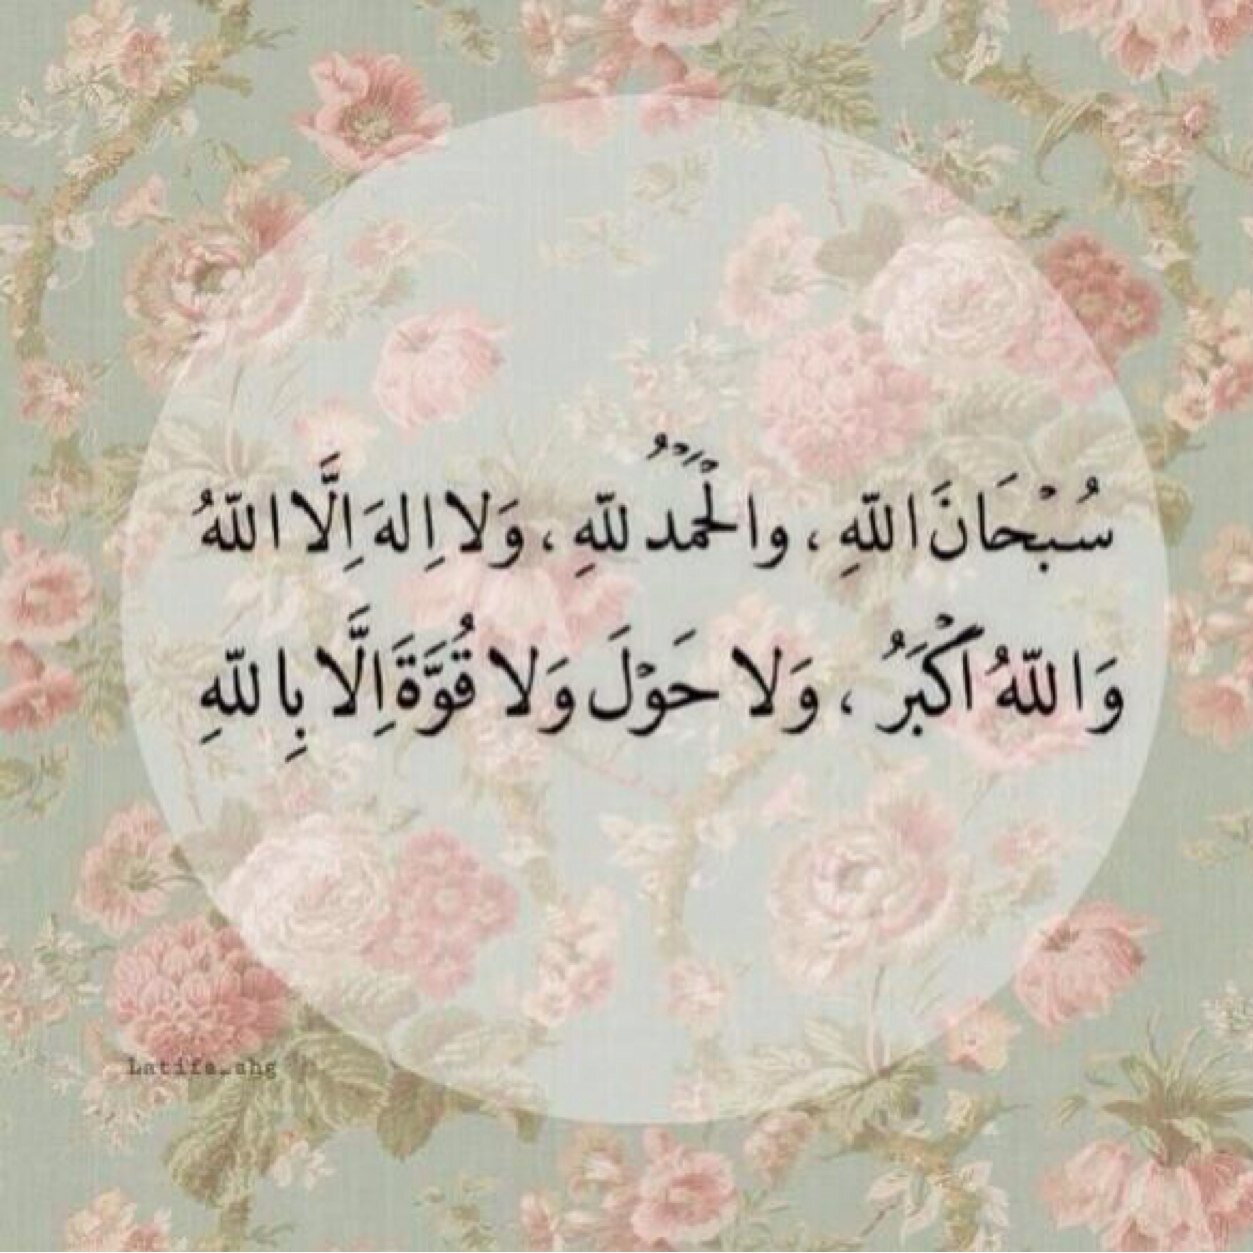 سُبْحَانَ اللّهِ ، والْحَمْدُ للّهِ ، وَلا اِلهَ اِلَّا اللّهُ
وَاللّهُ اَكْبَرُ ، وَلا حَوْلَ وَلا قُوَّةَ اِلَّا بِاللّهِ
Latifa_ahg